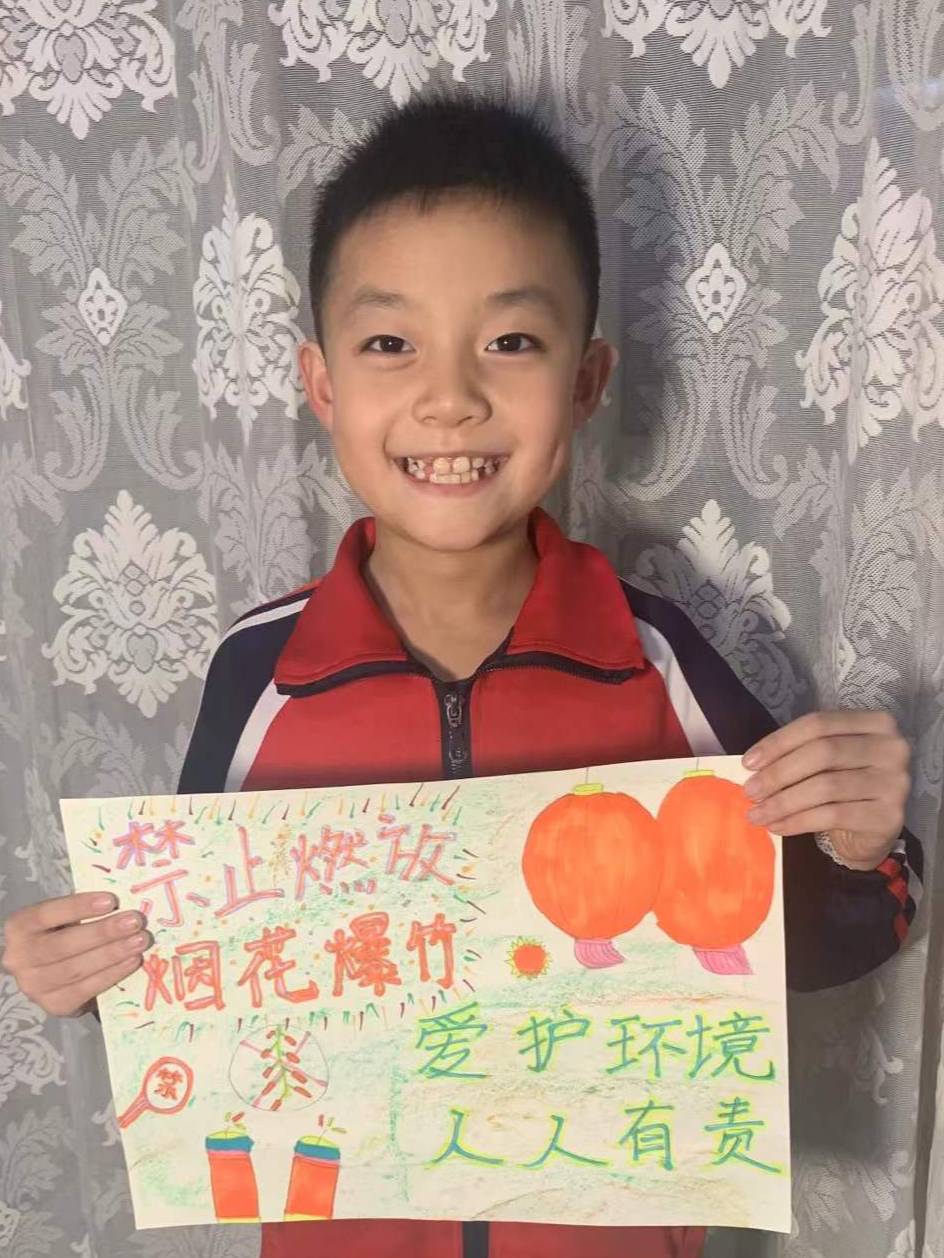 禁止燃放
烟花爆竹
禁
爱护环境
人人有责